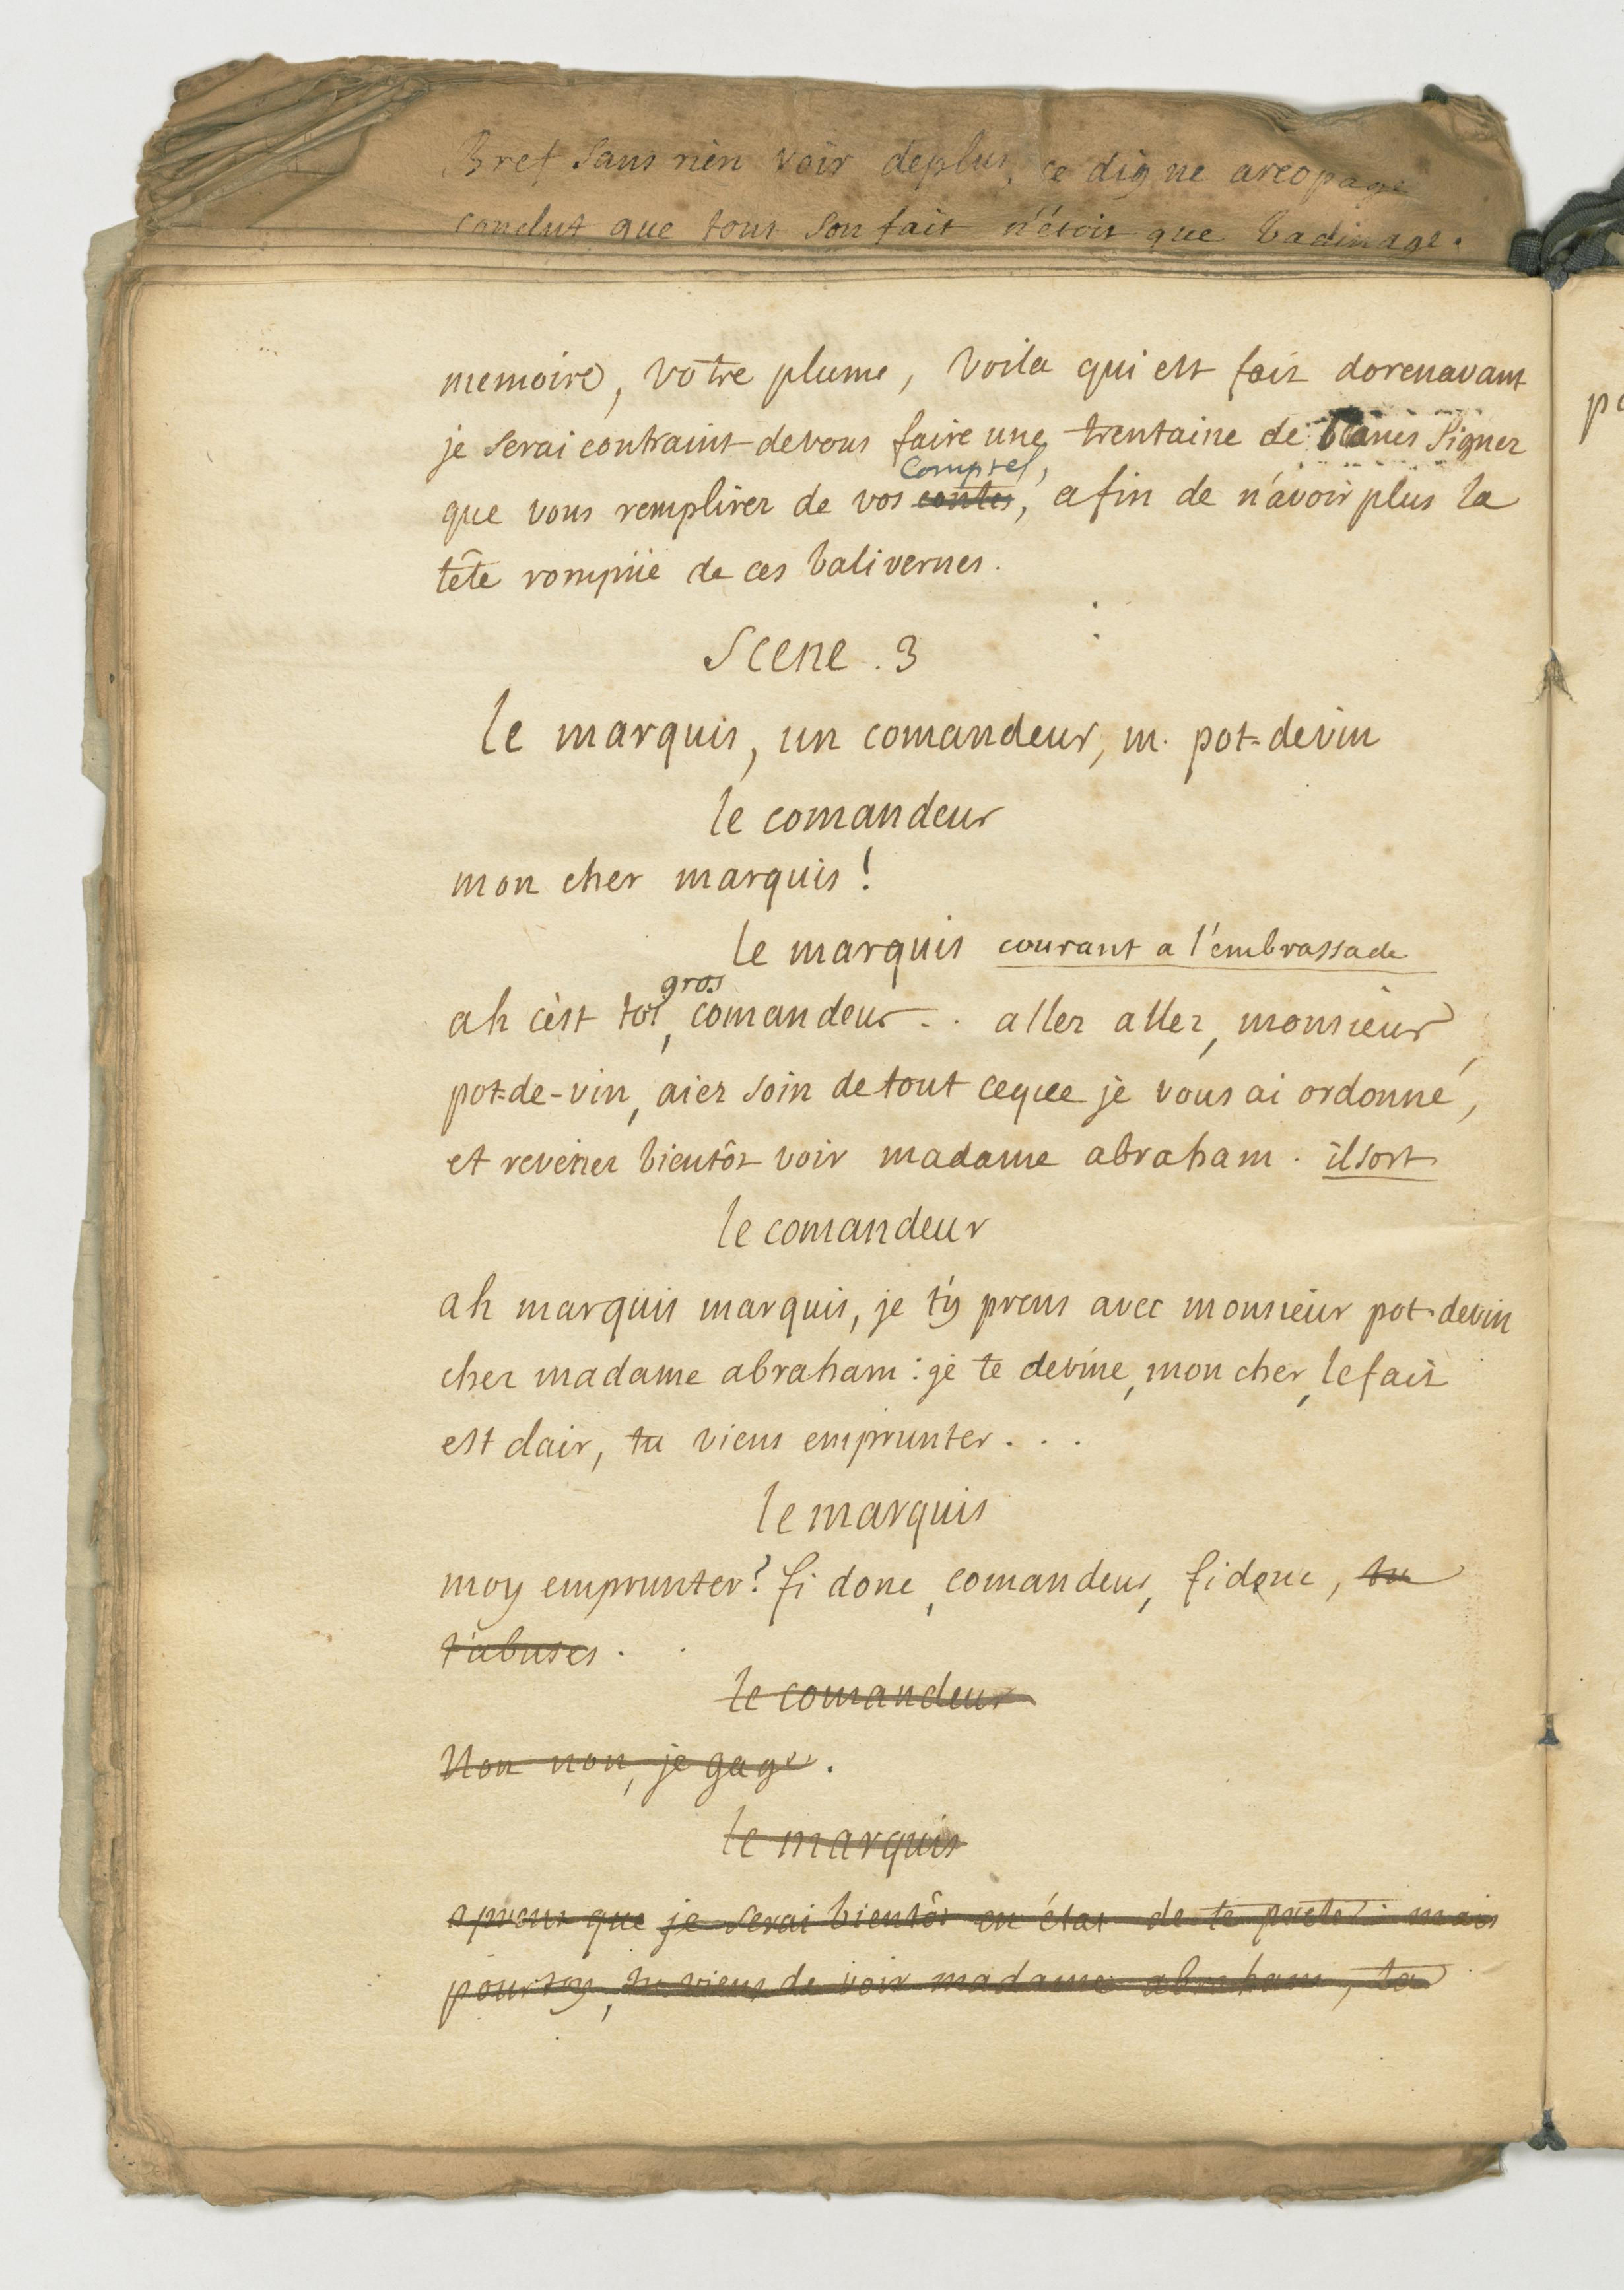 Bref sans rien voir deplus, ce digne areopage
conclut que tout son fait n'étoit que badinage.
memoire, votre plume, voila qui est fait dorenavant
je serai contraint devous faire une trentaine de blancs signez
comptes,
que vous remplirez de vos contes, afin de n'avoir plus la
tête rompüe de ces balivernes.
Scene . 3
le marquis, un comandeur, m. pot-devin
le comandeur
mon cher marquis !
le marquis courant a l'embrassade
gros
ah c'est toi, comandeur . . allez allez, monsieur
pot-de-vin, aiez soin detout ceque je vous ai ordonné,
et revenez bientôt voir madame abraham . il sort
le comandeur
ah marquis marquis, je t'y prens avec monsieur pot-devin
chez madame abraham : je te devine, mon cher, le fait
est clair, tu viens emprunter . . .
le marquis
moy emprunter? fi donc, comandeur, fi donc, tu
t'abuses . .
le comandeur
Non non, je gage .
le marquis
aprens que je serai bientôt en état de te preter : mais
pour toy, tu viens de voir madame abraham, ta
pa